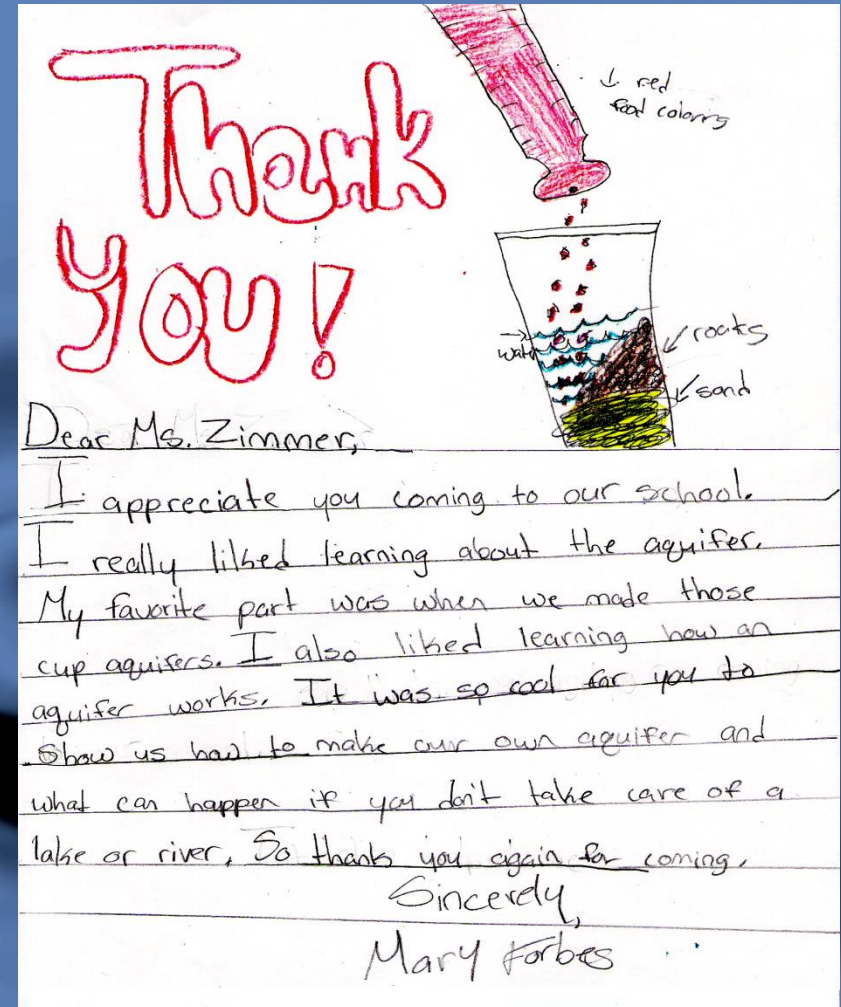 Thank
you!
↓ red
food coloring
→
water
roaks
sand
Dear Ms. Zimmer,
I appreciate you coming to our school.
I really liked learning about the aquifer.
My favorite part was when we made those
cup aquifers. I also liked learning how an
aquifer works. It was so cool for you to
show us how to make our own aquifer and
what can happen if you don't take care of a
lake or river. So thank you again for coming.
Sincerely,
Mary Forbes